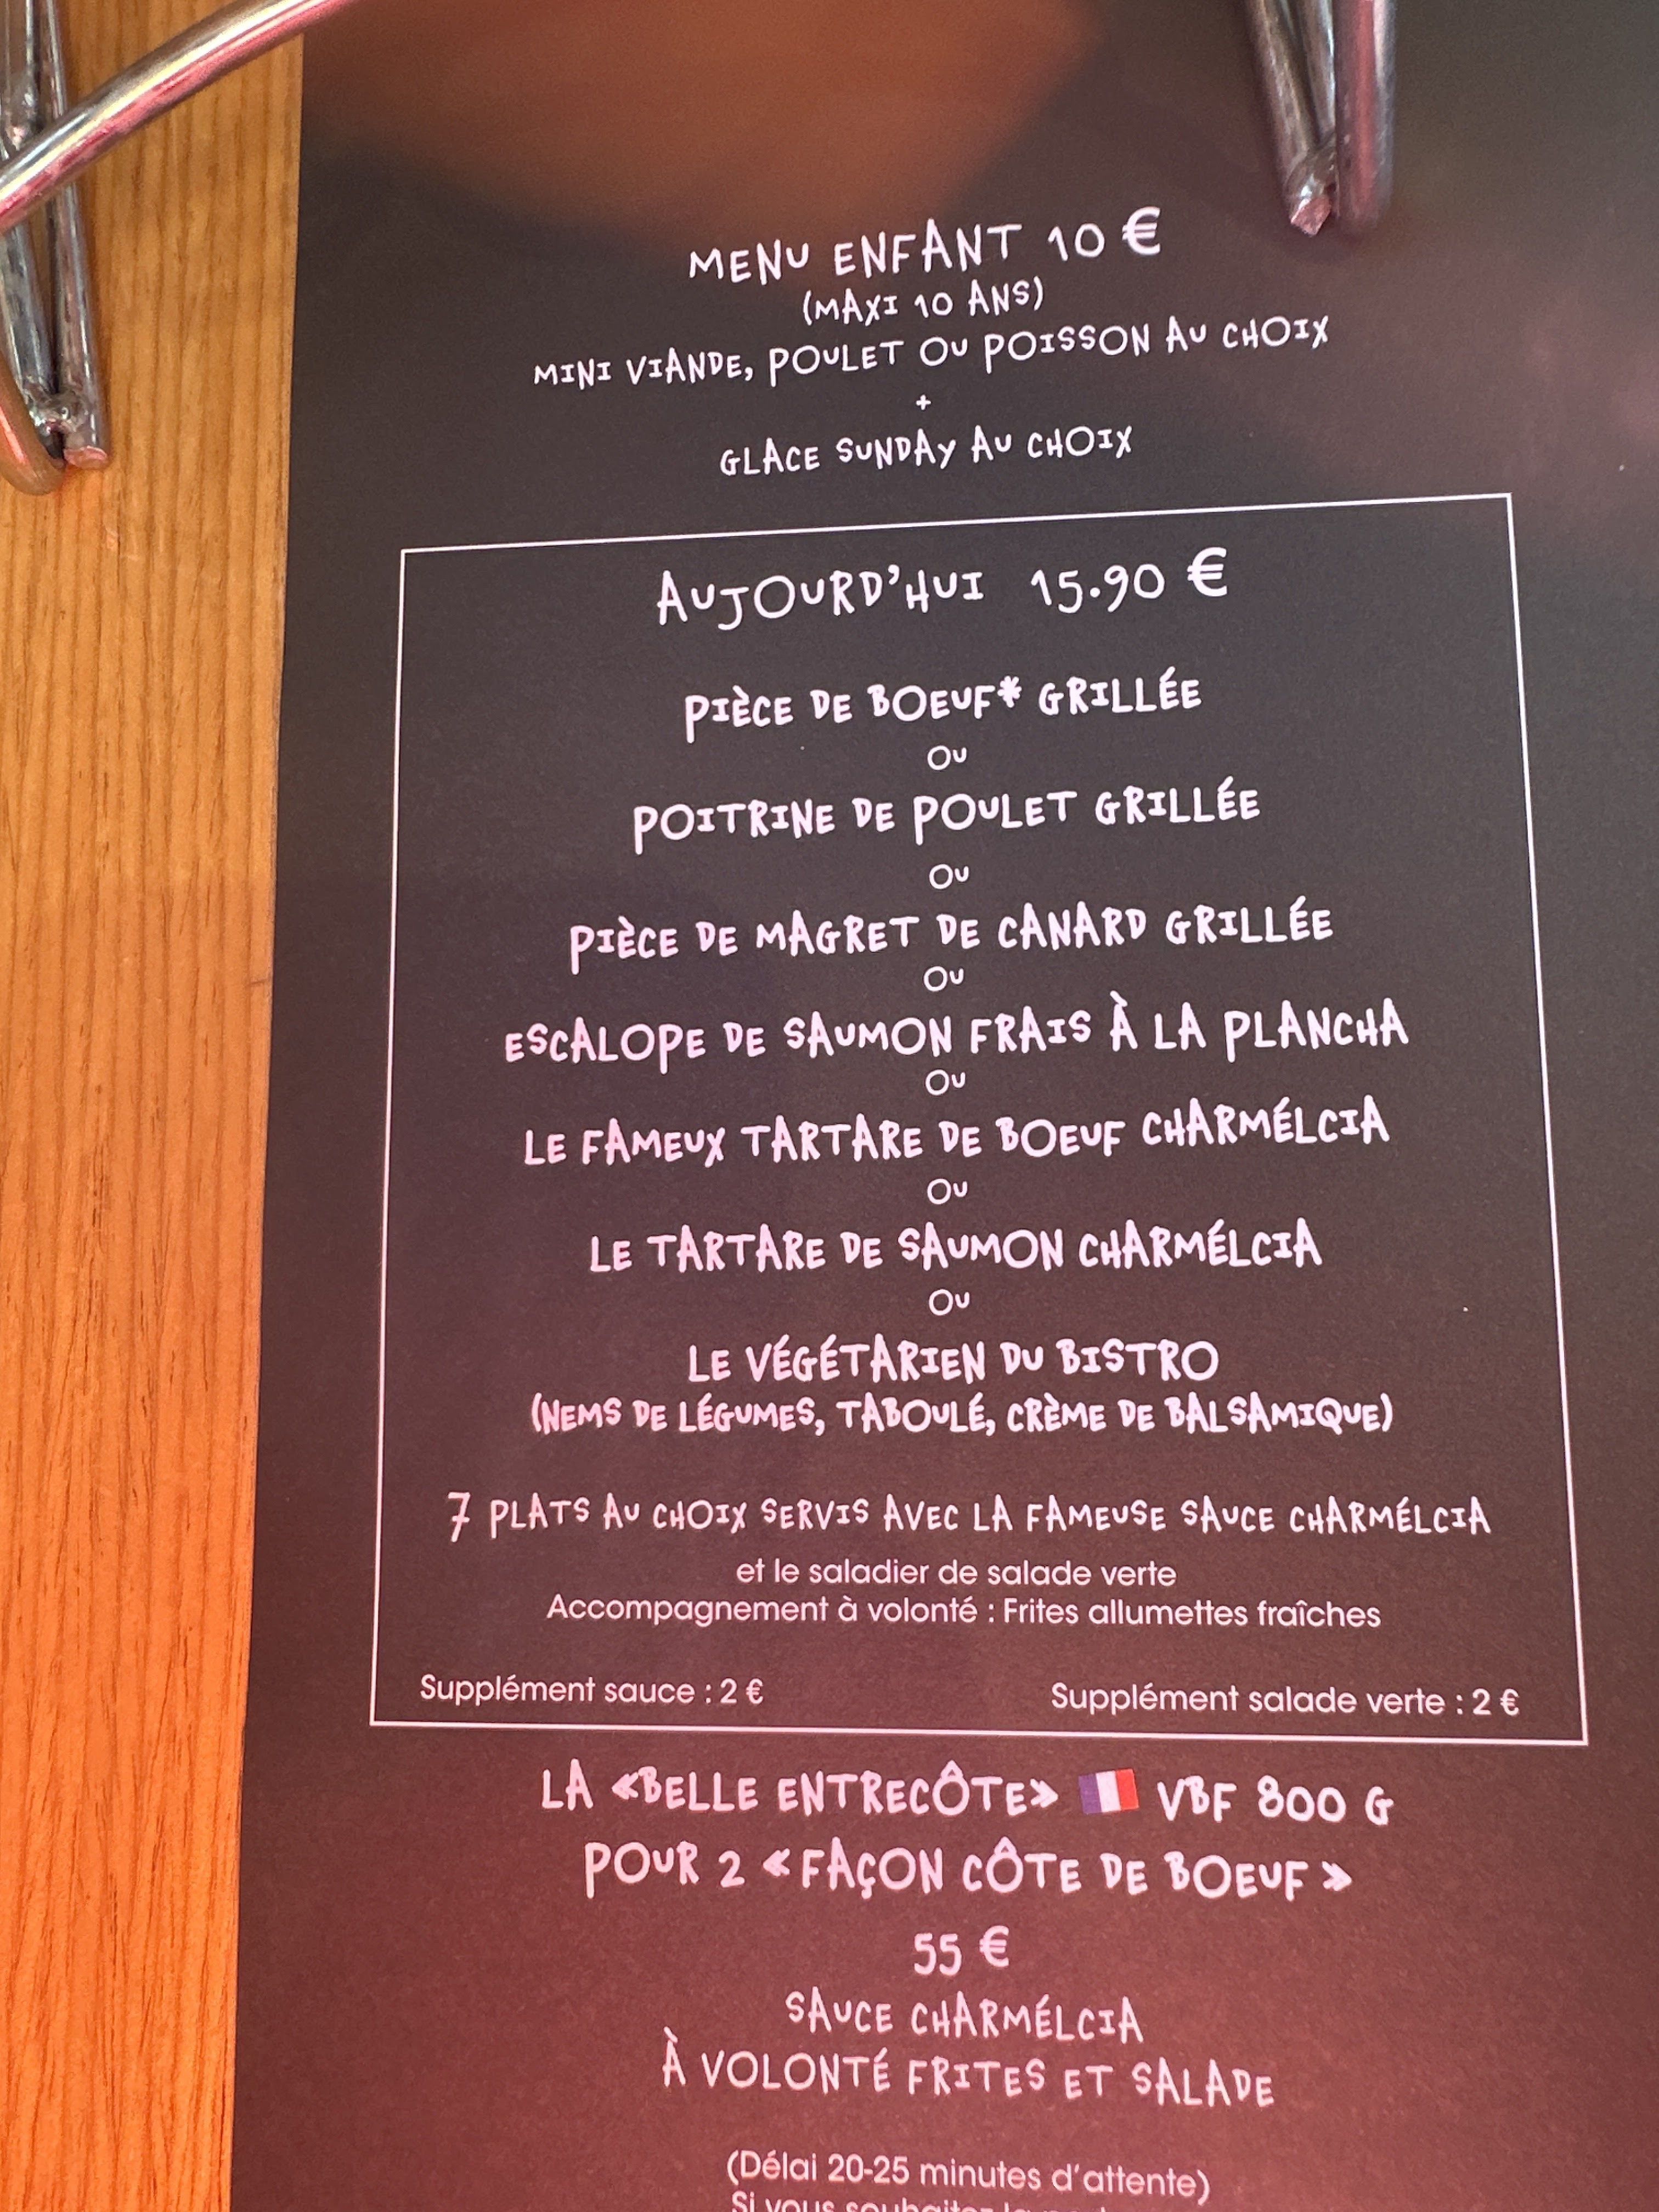 MENU ENFANT 10 €
(MAXI 10 ANS)
MINI VIANDE, POULET OU POISSON AU CHOIX
+
GLACE SUNDAY AU CHOIX
AUJOURD'HUI 15.90 €
PIÈCE DE BOEUF* GRILLÉE
OU
POITRINE DE POULET GRILLÉE
OU
PIÈCE DE MAGRET DE CANARD GRILLÉE
OU
ESCALOPE DE SAUMON FRAIS À LA PLANCHA
OU
LE FAMEUX TARTARE DE BOEUF CHARMÉLCIA
OU
LE TARTARE DE SAUMON CHARMÉLCIA
OU
LE VÉGÉTARIEN DU BISTRO
(NEMS DE LÉGUMES, TABOULÉ, CRÈME DE BALSAMIQUE)
7 PLATS AU CHOIX SERVIS AVEC LA FAMEUSE SAUCE CHARMÉLCIA
et le saladier de salade verte
Accompagnement à volonté : Frites allumettes fraîches
Supplément sauce : 2 €
Supplément salade verte : 2 €
LA «BELLE ENTRECÔTE» VBF 800 G
POUR 2 « FAÇON CÔTE DE BOEUF »
55 €
SAUCE CHARMÉLCIA
À VOLONTÉ FRITES ET SALADE
(Délai 20-25 minutes d'attente)
Si vous souhaitez